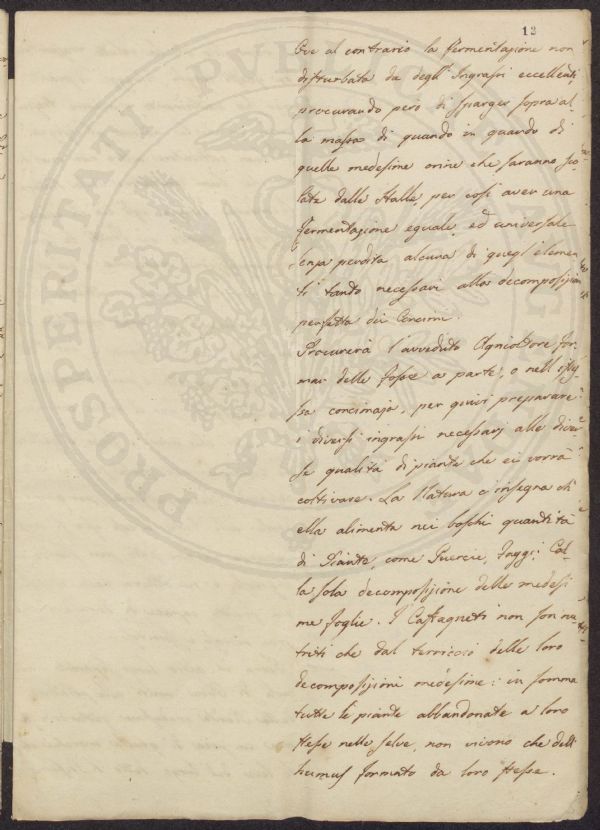 13
Ove al contrario la fermentazione non
disturbata da degl' Ingrassi eccellenti,
procurando però di sparger sopra al
la massa di quando in quando di
quelle medesime orine che saranno sco
late dalle stalle, per così aver una
fermentazione eguale, ed universale
senza perdita alcuna di quegl'elemen
ti tanto necessari alla decomposizione
perfetta dei Concimi.
Procurerà l'avveduto Agricoltore for
mar delle fosse a parte, o nell'istes
sa concimaja, per quivi preparare
i diversi ingrassi necessarj alle diver
se qualità di piante che ei vorrà
coltivare. La Natura c'insegna ch'
ella alimenta nei boschi quantità
di Piante, come Quercie, Faggi, Col
la sola decomposizione delle medesi
me foglie. I Castagneti non son nu
triti che dal terriccio delle loro
decomposizioni medesime: in somma
tutte le piante abbandonate a loro
stesse nelle selve, non vivono che dell'
humus formato da loro stesse.
PROSPERITATI PUBLICAE